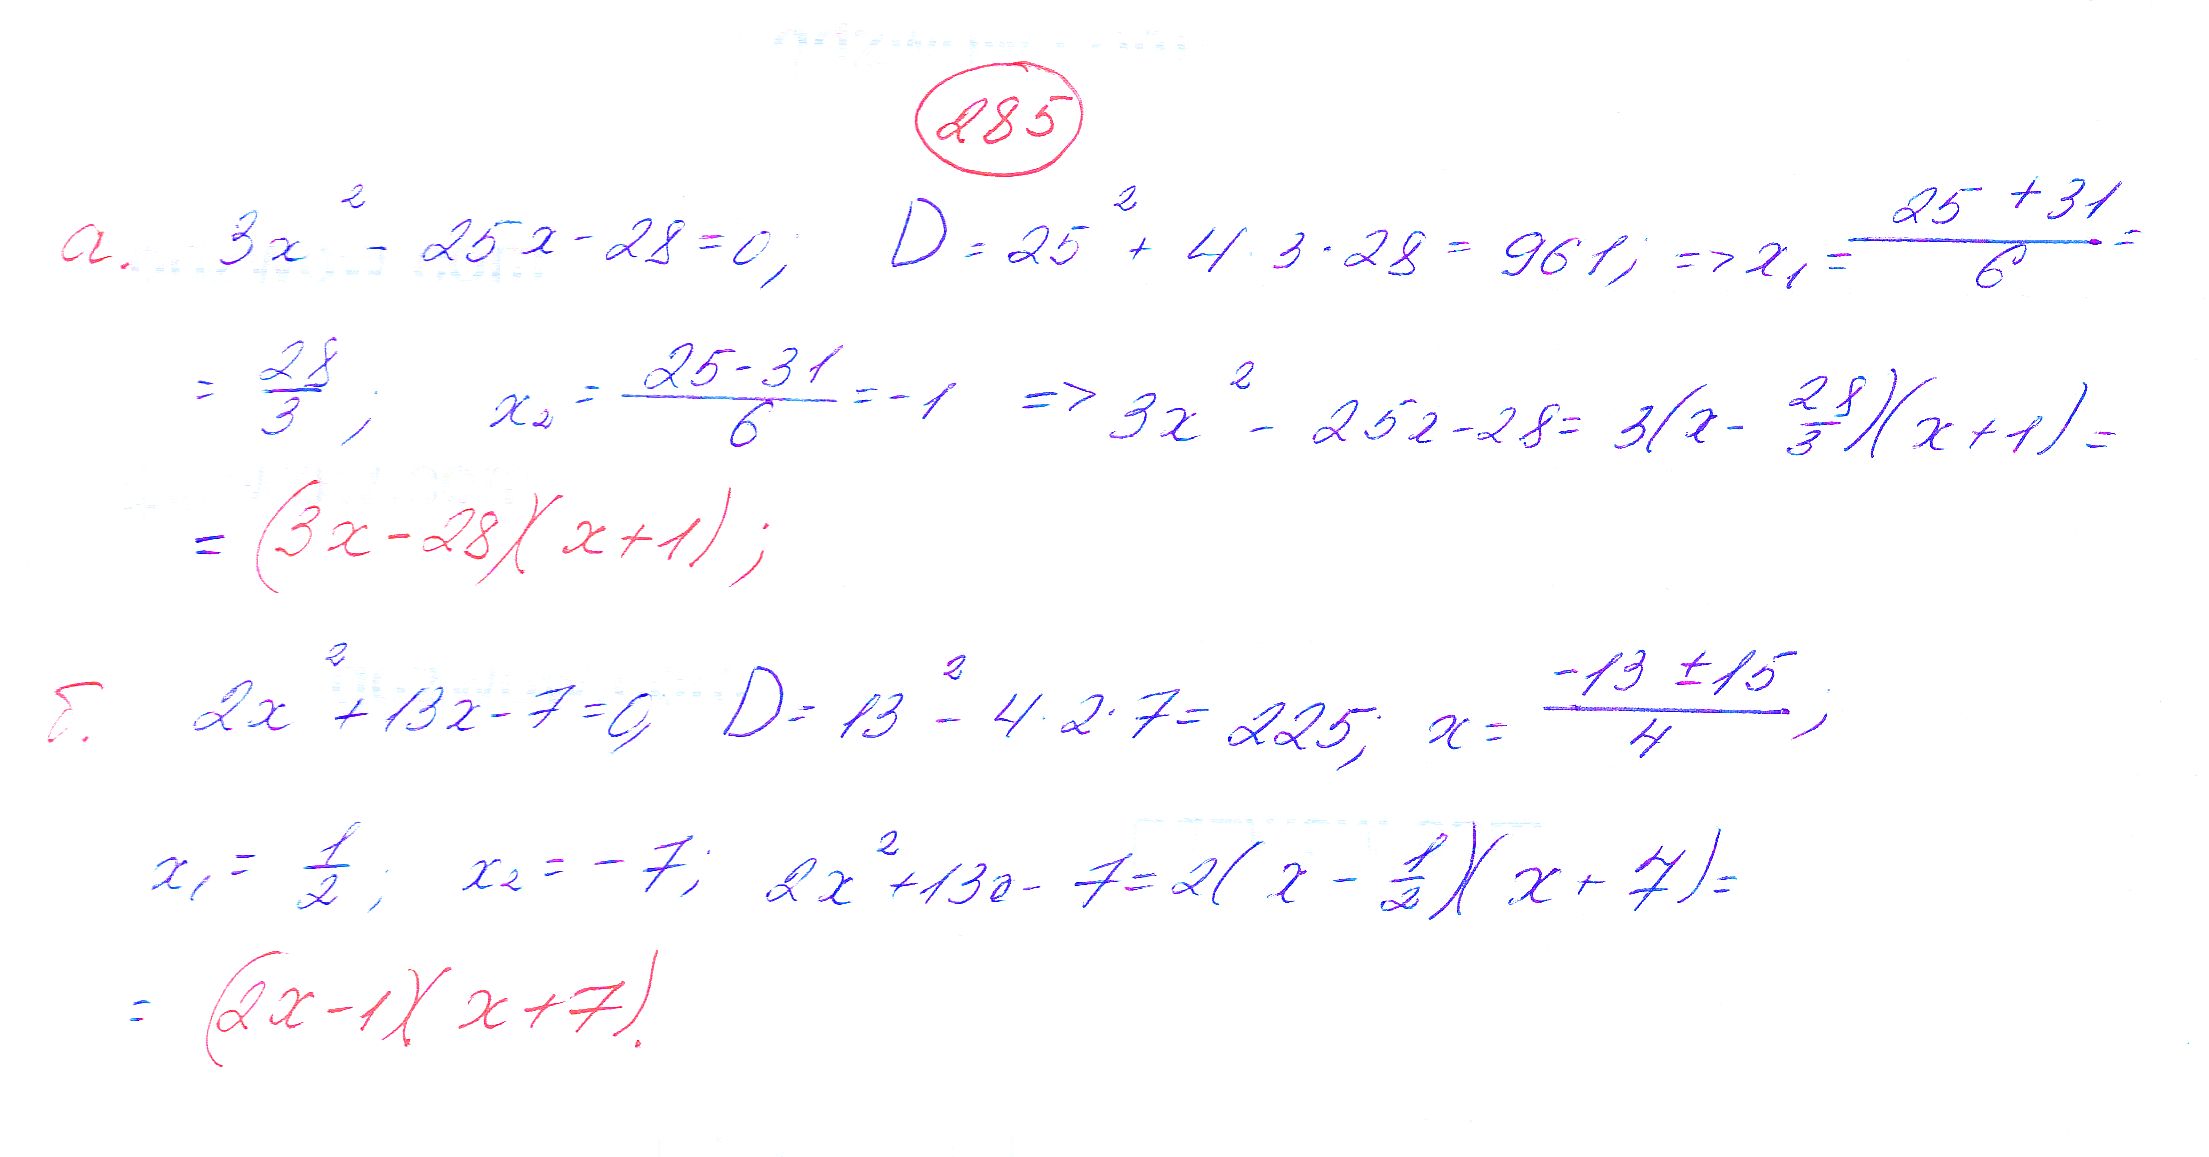 285
а. 3x² - 25x - 28 = 0; D = 25² + 4·3·28 = 961; => x₁ = (25 + 31)/6 =
= 28/3; x₂ = (25-31)/6 = -1 => 3x² - 25x - 28 = 3(x - 28/3)(x+1) =
= (3x-28)(x+1);
б. 2x² + 13x - 7 = 0, D = 13² - 4·2·7 = 225; x = (-13 ± 15)/4;
x₁ = 1/2; x₂ = -7; 2x² + 13x - 7 = 2(x - 1/2)(x + 7) =
= (2x-1)(x+7).